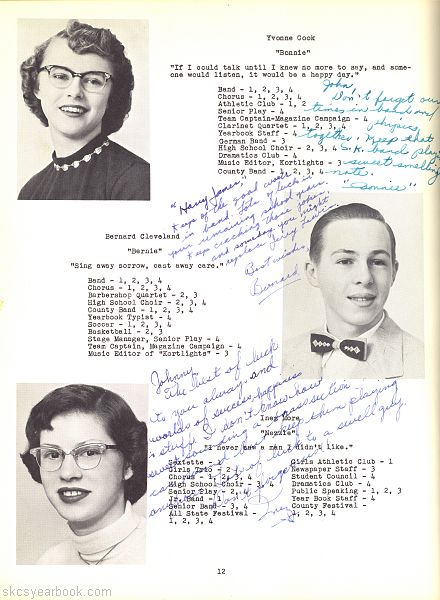 Yvonne Cook
"Bonnie"
"If I could talk until I knew no more to say, and some-
one would listen, it would be a happy day."
Band - 1, 2, 3, 4
Chorus - 1, 2, 3, 4
Athletic Club - 1, 2
Senior Play - 4
Team Captain-Magazine Campaign - 4
Clarinet Quartet - 1, 2, 3, 4
Yearbook Staff - 4
German Band - 3
High School Choir - 2, 3, 4
Dramatics Club - 4
Music Editor, Kortlights - 3
County Band - 1, 2, 3, 4
John,
Don't forget our
times in band and
physics
together. Keep that
S.K. band play
sweet smelling
note.
"Bonnie"
"Harry James,"
up the good work
in band. Lots of luck in
your remaining school years.
cracking those jokes,
and someday you might
replace Jerry Lewis.
Best wishes,
Bernard
Bernard Cleveland
"Bernie"
"Sing away sorrow, cast away care."
Band - 1, 2, 3, 4
Chorus - 1, 2, 3, 4
Barbershop Quartet - 2, 3
High School Choir - 2, 3, 4
County Band - 1, 2, 3, 4
Yearbook Typist - 4
Soccer - 1, 2, 3, 4
Basketball - 2, 3
Stage Manager, Senior Play - 4
Team Captain, Magazine Campaign - 4
Music Editor of "Kortlights" - 3
Johnny,
The best of luck
to you always and
worlds of success, happiness
I don't know how
section
them playing
to a swell guy
Inez
Inez More
"Nezzie"
"I never saw a man I didn't like."
Sextette -
Girls Trio - 2
Chorus - 1, 2, 3, 4
High School Choir - 3, 4
Senior Play - 2, 4
Jr. Band - 1
Senior Band - 3, 4
All State Festival -
1, 2, 3, 4
Girls Athletic Club - 1
Newspaper Staff - 3
Student Council - 4
Dramatics Club - 4
Public Speaking - 1, 2, 3
Year Book Staff - 4
County Festival -
1, 2, 3, 4
12
skcsyearbook.com